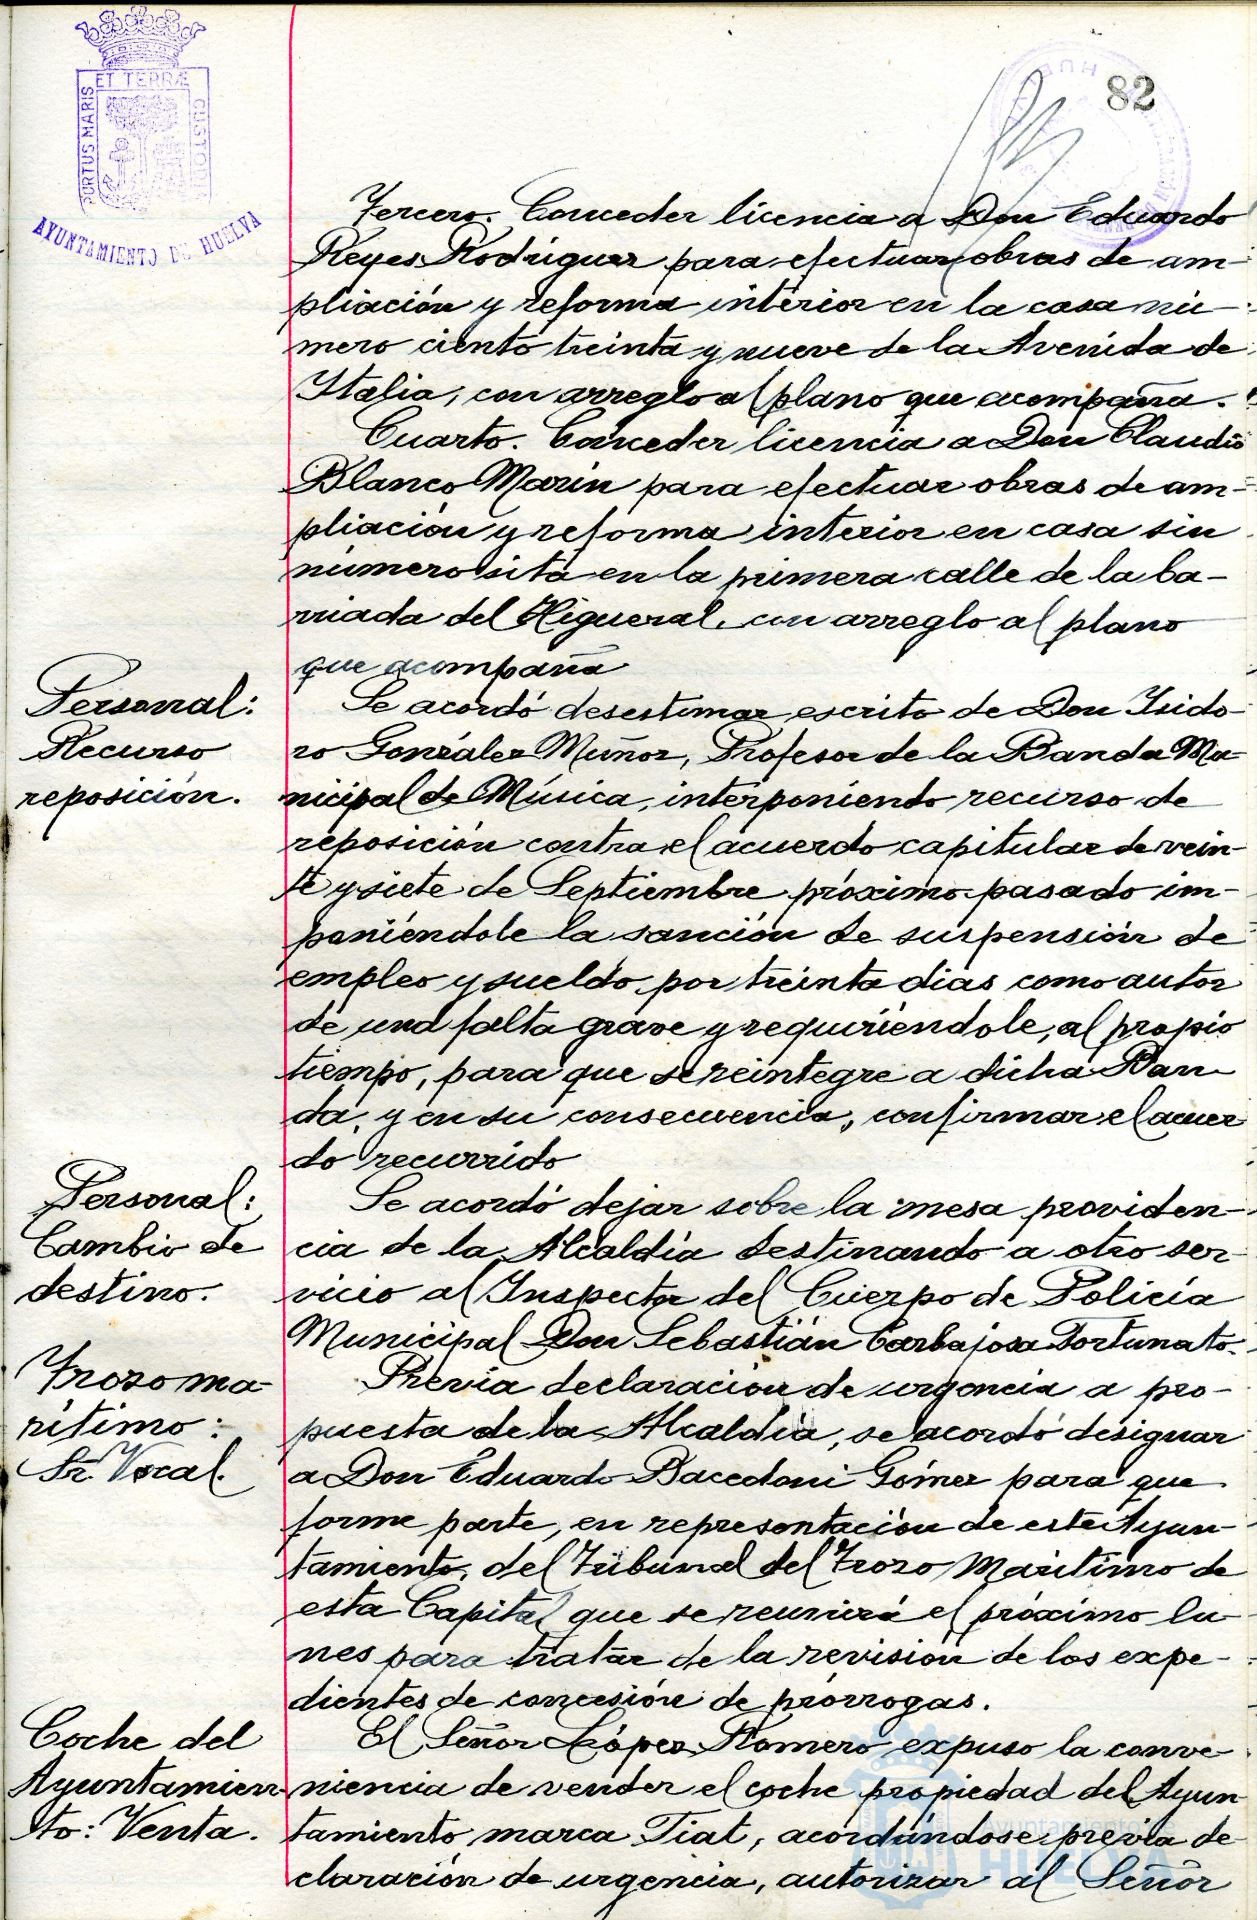 82
PORTUS MARIS ET TERRÆ CUSTODIA
AYUNTAMIENTO DE HUELVA
Tercero. Conceder licencia a Don Eduardo
Reyes Rodríguez para efectuar obras de am-
pliación y reforma interior en la casa nú-
mero ciento treinta y nueve de la Avenida de
Italia, con arreglo al plano que acompaña.
Cuarto. Conceder licencia a Don Claudio
Blanco Marín para efectuar obras de am-
pliación y reforma interior en casa sin
número sita en la primera calle de la ba-
rriada del Higueral, con arreglo al plano
que acompaña
Personal:
Recurso
reposición.
Se acordó desestimar escrito de Don Isido
ro González Muñoz, Profesor de la Banda Mu-
nicipal de Música, interponiendo recurso de
reposición contra el acuerdo capitular de vein-
te y siete de Septiembre próximo pasado im-
poniéndole la sanción de suspensión de
empleo y sueldo por treinta dias como autor
de una falta grave y requiriéndole, al propio
tiempo, para que se reintegre a dicha Ban-
da, y en su consecuencia, confirmar el acuer
do recurrido
Personal:
Cambio de
destino.
Se acordó dejar sobre la mesa providen-
cia de la Alcaldía destinando a otro ser-
vicio al Inspector del Cuerpo de Policía
Municipal Don Sebastián Carbajosa Fortunato.
Trozo ma-
rítimo:
Sr. Vocal.
Previa declaración de urgencia a pro-
puesta de la Alcaldía, se acordó designar
a Don Eduardo Bacedoni Gómez para que
forme parte, en representación de este Ayun-
tamiento, del Tribunal del Trozo Marítimo de
esta Capital que se reunirá el próximo lu-
nes para tratar de la revisión de los expe-
dientes de concesión de prórrogas.
Coche del
Ayuntamien-
to: Venta.
El Señor López Romero expuso la conve-
niencia de vender el coche propiedad del Ayun-
tamiento marca Fiat, acordándose, previa de
claración de urgencia, autorizar al Señor
Ayuntamiento de
HUELVA